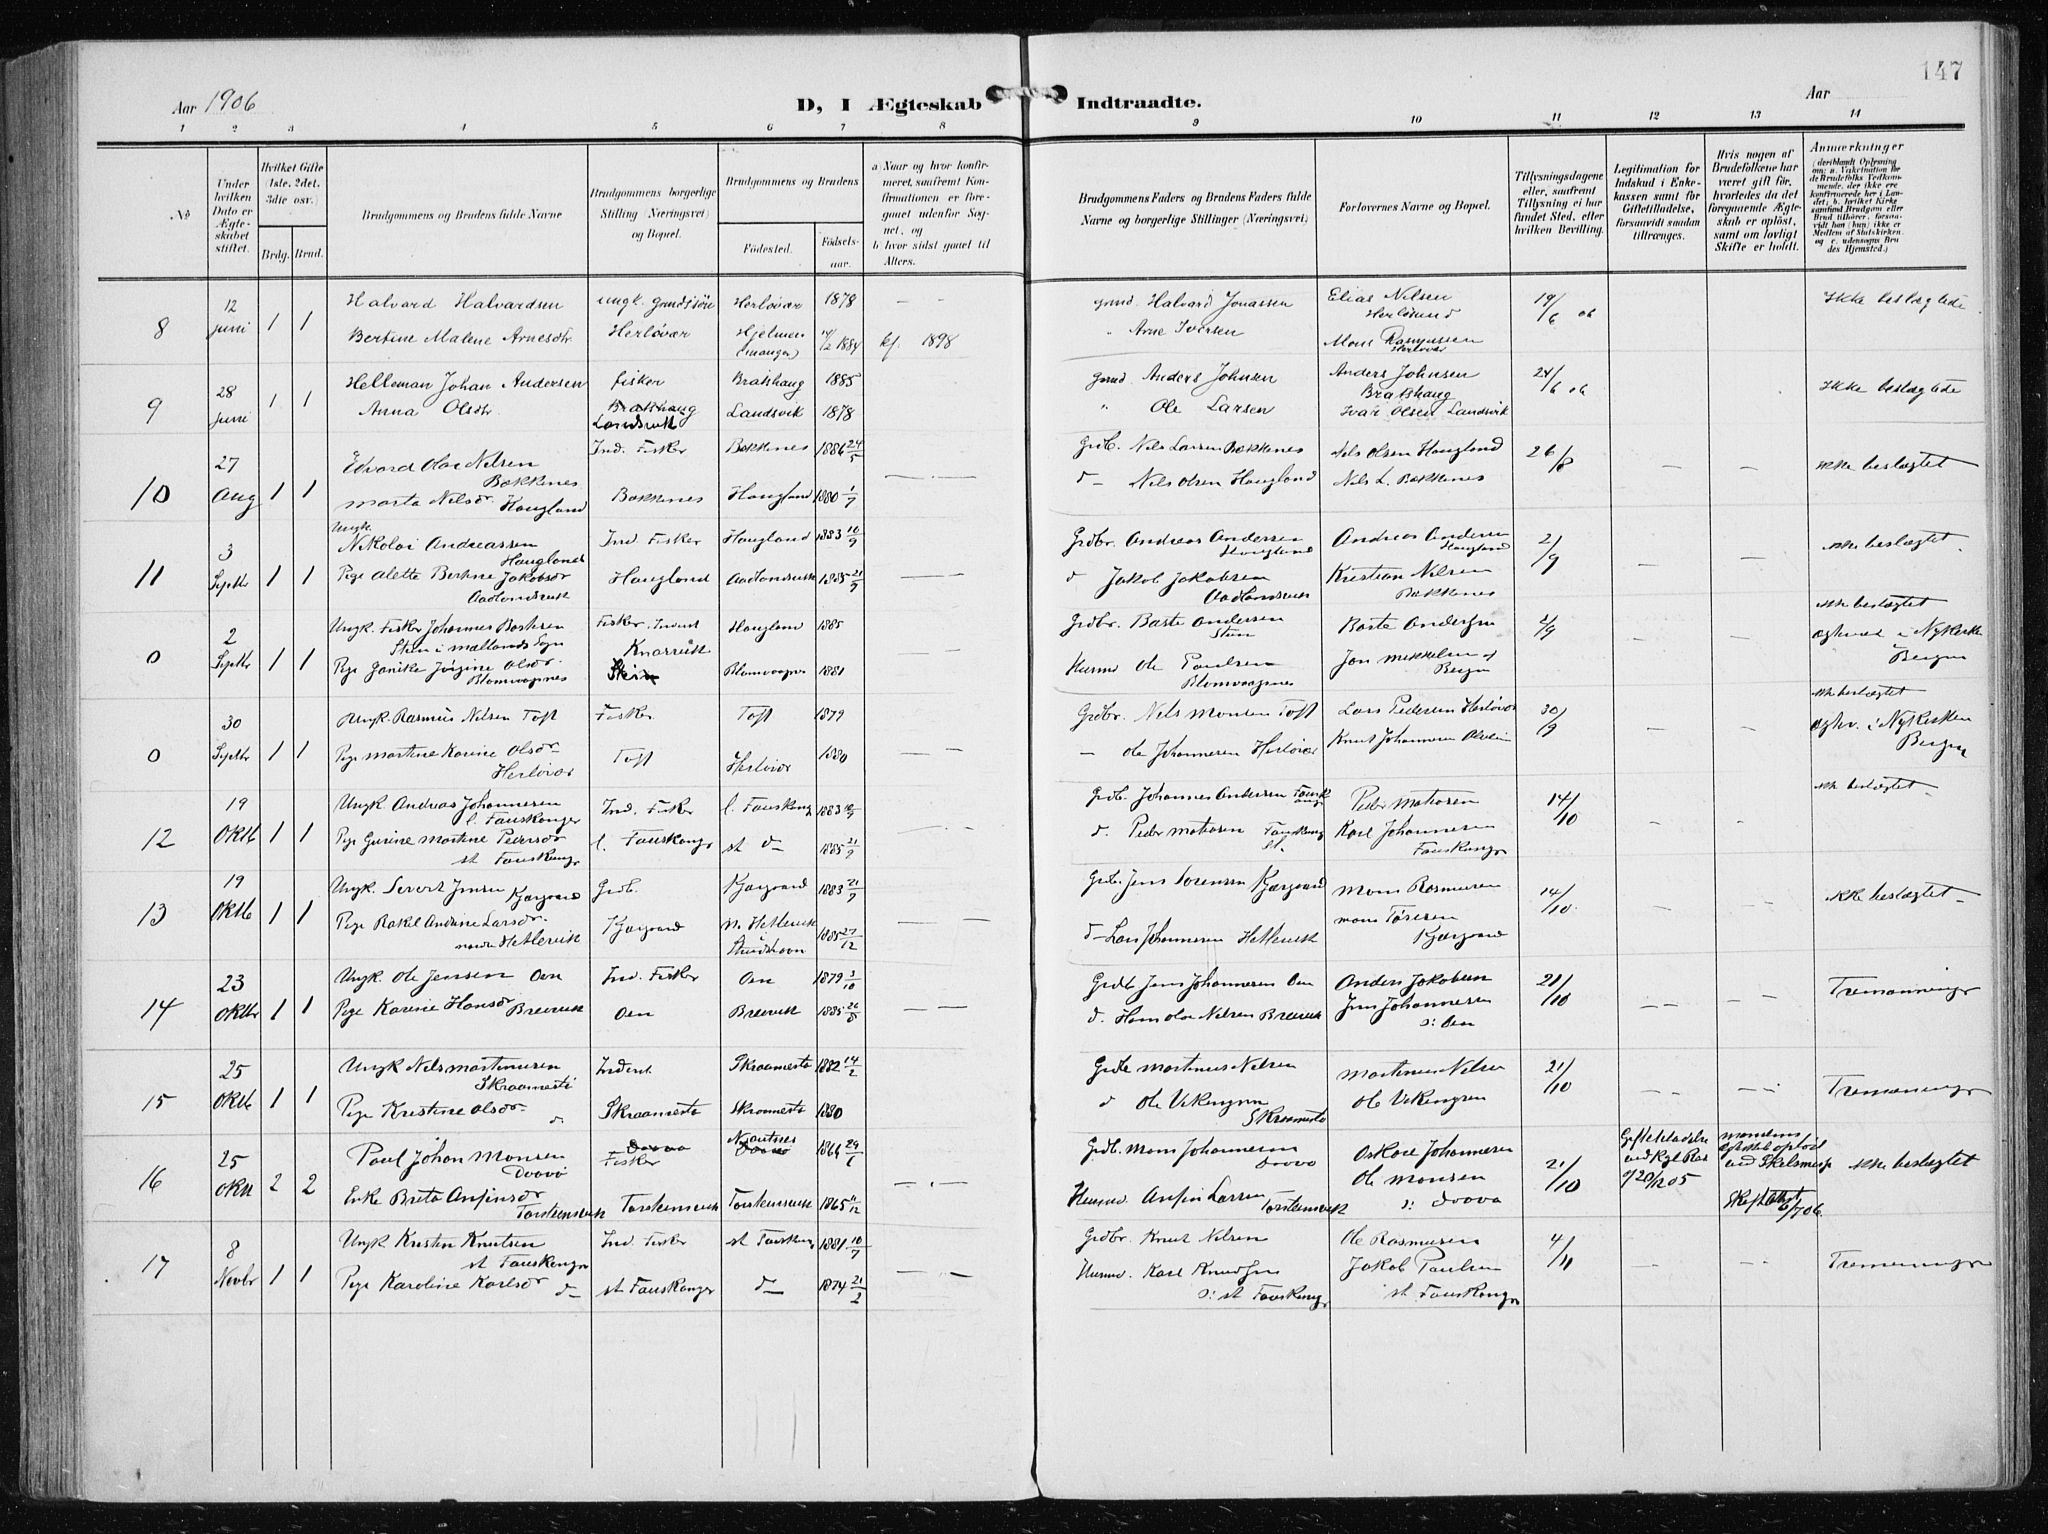 147
Aar 1906
D, I Ægteskab Indtraadte.
Aar
1 2 3 4 5 6 7 8 9 10 11 12 13 14
No
Under hvilken Dato er Ægteskabet stiftet.
Hvilket Gifte (1ste, 2det, 3die osv.)
Brdg. Brud.
Brudgommens og Brudens fulde Navne
Brudgommens borgerlige Stilling (Næringsvei) og Bopæl.
Brudgommens og Brudens
Fødested. Fødselsaar.
a) Naar og hvor konfirmeret, saafremt Konfirmationen er foregaaet udenfor Sognet, og
b) hvor sidst gaaet til Alters.
Brudgommens Faders og Brudens Faders fulde Navne og borgerlige Stillinger (Næringsvei)
Forlovernes Navne og Bopæl.
Tillysningsdagene eller, saafremt Tillysning ei har fundet Sted, efter hvilken Bevilling.
Legitimation for Indskud i Enkekassen samt for Giftetilladelse, forsaavidt saadan tiltrænges.
Hvis nogen af Brudefolkene har været gift før, hvorledes da det foregaaende Ægteskab er opløst, samt om lovligt Skifte er holdt.
Anmærkninger
8 12 juni 1 1
Halvard Halvardsen Ungk. Herløvær 1878 — —
Bertine Malene Arnesdtr Herløvær Hjelmen (Manger) 1884 kf. 1898
Halvard Jonassen Elias Nilsen 19/6 06 Ikke beslægtede
Arne Iversen Mons Rasmussen Herløvær
9 28 juni 1 1
Helleman Johan Andersen fisker Brakhaug 1885
Anna Olsdtr Brakhaug Landsvik Landsvik 1878
Anders Johnsen Anders Johnsen Brakhaug 24/6 06 Ikke beslægtede
Ole Larsen Ivar Olsen Landsvik
10 27 Aug 1 1
Edvard Olai Nilsen Bakkenes Ind. Fisker Bakkenes 1886 24/5
Marta Nilsdr Haugland Bakkenes Haugland 1880 1/7
Grdb. Nils Larsen Bakkenes Nils Olsen Haugland 26/8 — — ikke beslægtet
d— Nils Olsen Haugland Nils L. Bakkenes
11 3 Septbr 1 1
Ungk. Nikolai Andreassen Haugland Ind. Fisker Haugland 1883 10/9
Pige Alette Bertine Jakobsdr Aadlandsvik Haugland Aadlandsvik 1885 21/9 — —
Grdbr. Andreas Andersen Haugland Andreas Andersen Haugland 2/9 — — ikke beslægtet
d Jakob Jakobsen Aadlandsvik Kristian Nilsen Bakkenes
0 2 Septbr 1 1
Ungk. Fisker Johannes Bastesen Stien i Mællands Sogn Fisker. Haugland 1885
Pige Jørgine Olsdr Blomvaagnes Knarrvik Stein Blomvaagnes 1881
Grdbr. Baste Andersen Baste Andersen 2/9 ikke beslægtet
Husmd Ole Paulsen Blomvaagnes Jon Mikkelsen af Bergen i Nykirken Bergen
0 30 Septbr 1 1
Ungk. Rasmus Nilsen Toft Fisker Toft 1879
Pige Martine Karine Olsdr Herløvær Toft Herløvær 1880 — —
Grdbr. Nils Monsen Toft Lars Pedersen Herløvær 30/9 ikke beslægtet
— Ole Johannesen Herløvær Knut Johannesen i Nykirken Bergen
12 19 Oktb 1 1
Ungk. Andreas Johannesen l. Fauskanger Ind. Fisker l. Fauskanger 1883
Pige Gurine Martine Pedersdr st Fauskanger l. Fauskangr st d— 1885 21/9
Grdb. Johannes Andersen Fauskangr Peder Matiasen 14/10 — — ikke beslægtet
d. Peder Matiasen Fauskangr st. Karl Johannesen Fauskangr
13 19 Oktb 1 1
Ungk. Severt Jensen Kjærgaard Grdb. Kjærgaard 1883 21/9
Pige Rakel Andrine Larsdr Hetlevik Kjærgaard n. Hetlevik 1885 27/12 — —
Grdb. Jens Sørensen Kjærgaard Mons Rasmusen 14/10 — — ikke beslægtet
d— Lars Johannesen Hetlevik Mons Kjærgaard
14 23 Oktbr 1 1
Ungk. Ole Jensen Oen Ind. Fisker Oen 1879 3/10
Pige Karine Hansdr Breivik Oen Breivik 1885 — —
Grdb Jens Johannesen Oen Anders Jakobsen 21/10 — — Tremænninger
d. Hans Olai Nilsen Breivik Jens Johannesen d: Oen
15 25 Oktb 1 1
Ungk Nils Martinusen Skraamestø Inderst Skraamestø 1882 14/2
Pige Kristine Olsdr d. Skraamestø Skraamestø 1880
Grdb Martinus Nilsen Martinus Nilsen 21/10 — — Tremæninger
d Ole Vikingsen Skraamestø Ole Vikingsen
16 25 Okt 2 2
Paul Johan Monsen Davø Fisker 1864
Enke Brita Ansfinsdr Torsteinsvik Torsteinsvik Torsteinsvik 1865 — . —
Grdb. Mons Johannesen Davø Oskar Johannesen 21/10 Giftetilladelse ved Kgl Res 9/20/12 05 ved Skilsmisse ikke beslægtet
Husmd Ansfin Larsen Torsteinsvik Ole Monsen
17 8 Novbr 1 1
Ungk Kristen Knutsen st Fauskangr Ind. Fisker st Fauskangr 1881 10/7
Pige Karoline Karlsdr d— st Fauskanger d— 1874 21/2 — —
Grdbr. Knut Nilsen Ole Rasmusen 4/11 — — Tremeninger
Husmd. Karl Knudsen d: st Fauskangr Jakob Paulsen st Fauskangr